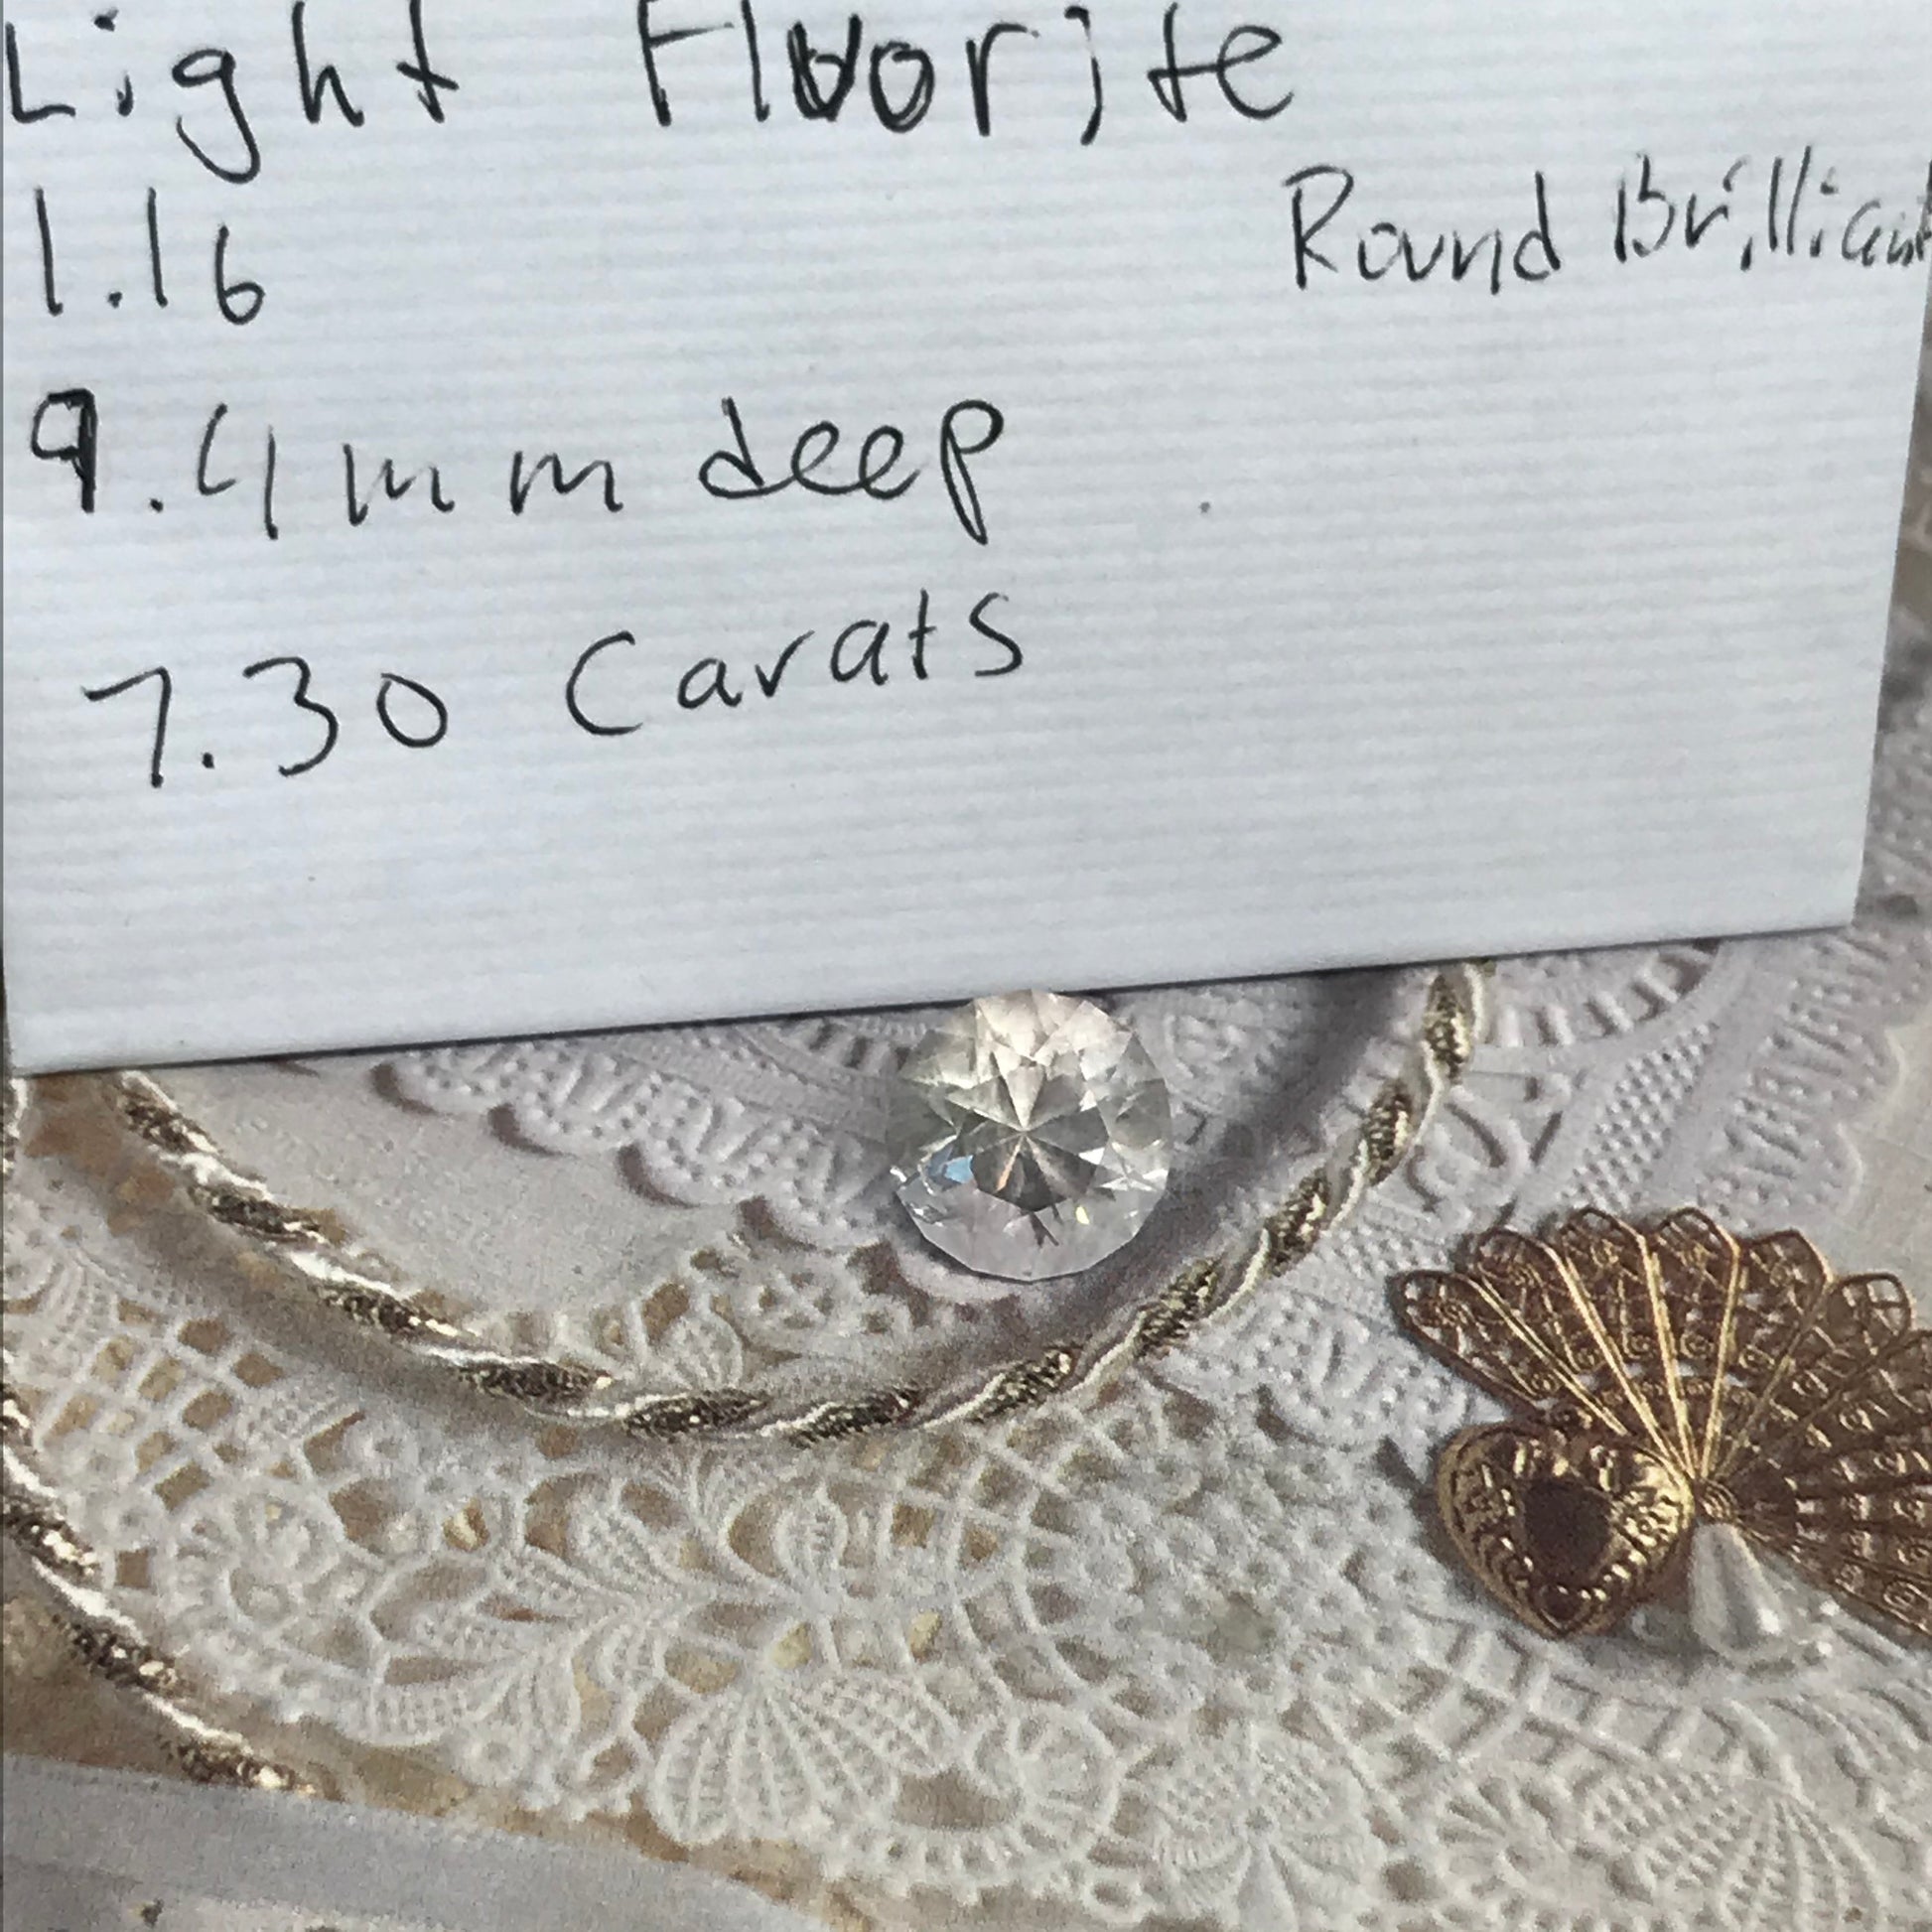 Light Fluorite
1.16
Round Brilliant
9.4mm deep
7.30 Carats